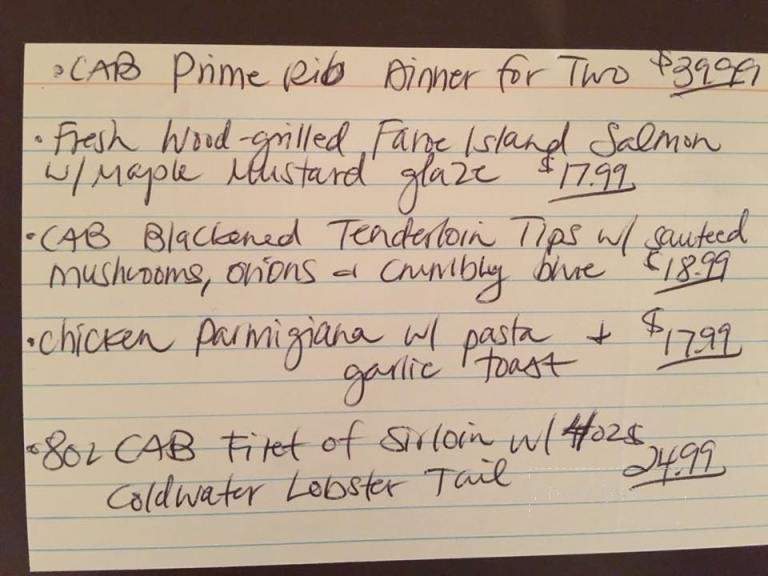 • CAB Prime Rib Dinner for Two $39.99
• Fresh Wood-grilled Faroe Island Salmon
w/ Maple Mustard glaze $17.99
• CAB Blackened Tenderloin Tips w/ sauteed
mushrooms, onions & crumbly blue $18.99
• Chicken Parmigiana w/ pasta + $17.99
garlic toast
• 8oz CAB Filet of Sirloin w/ 4oz
Coldwater Lobster Tail 24.99